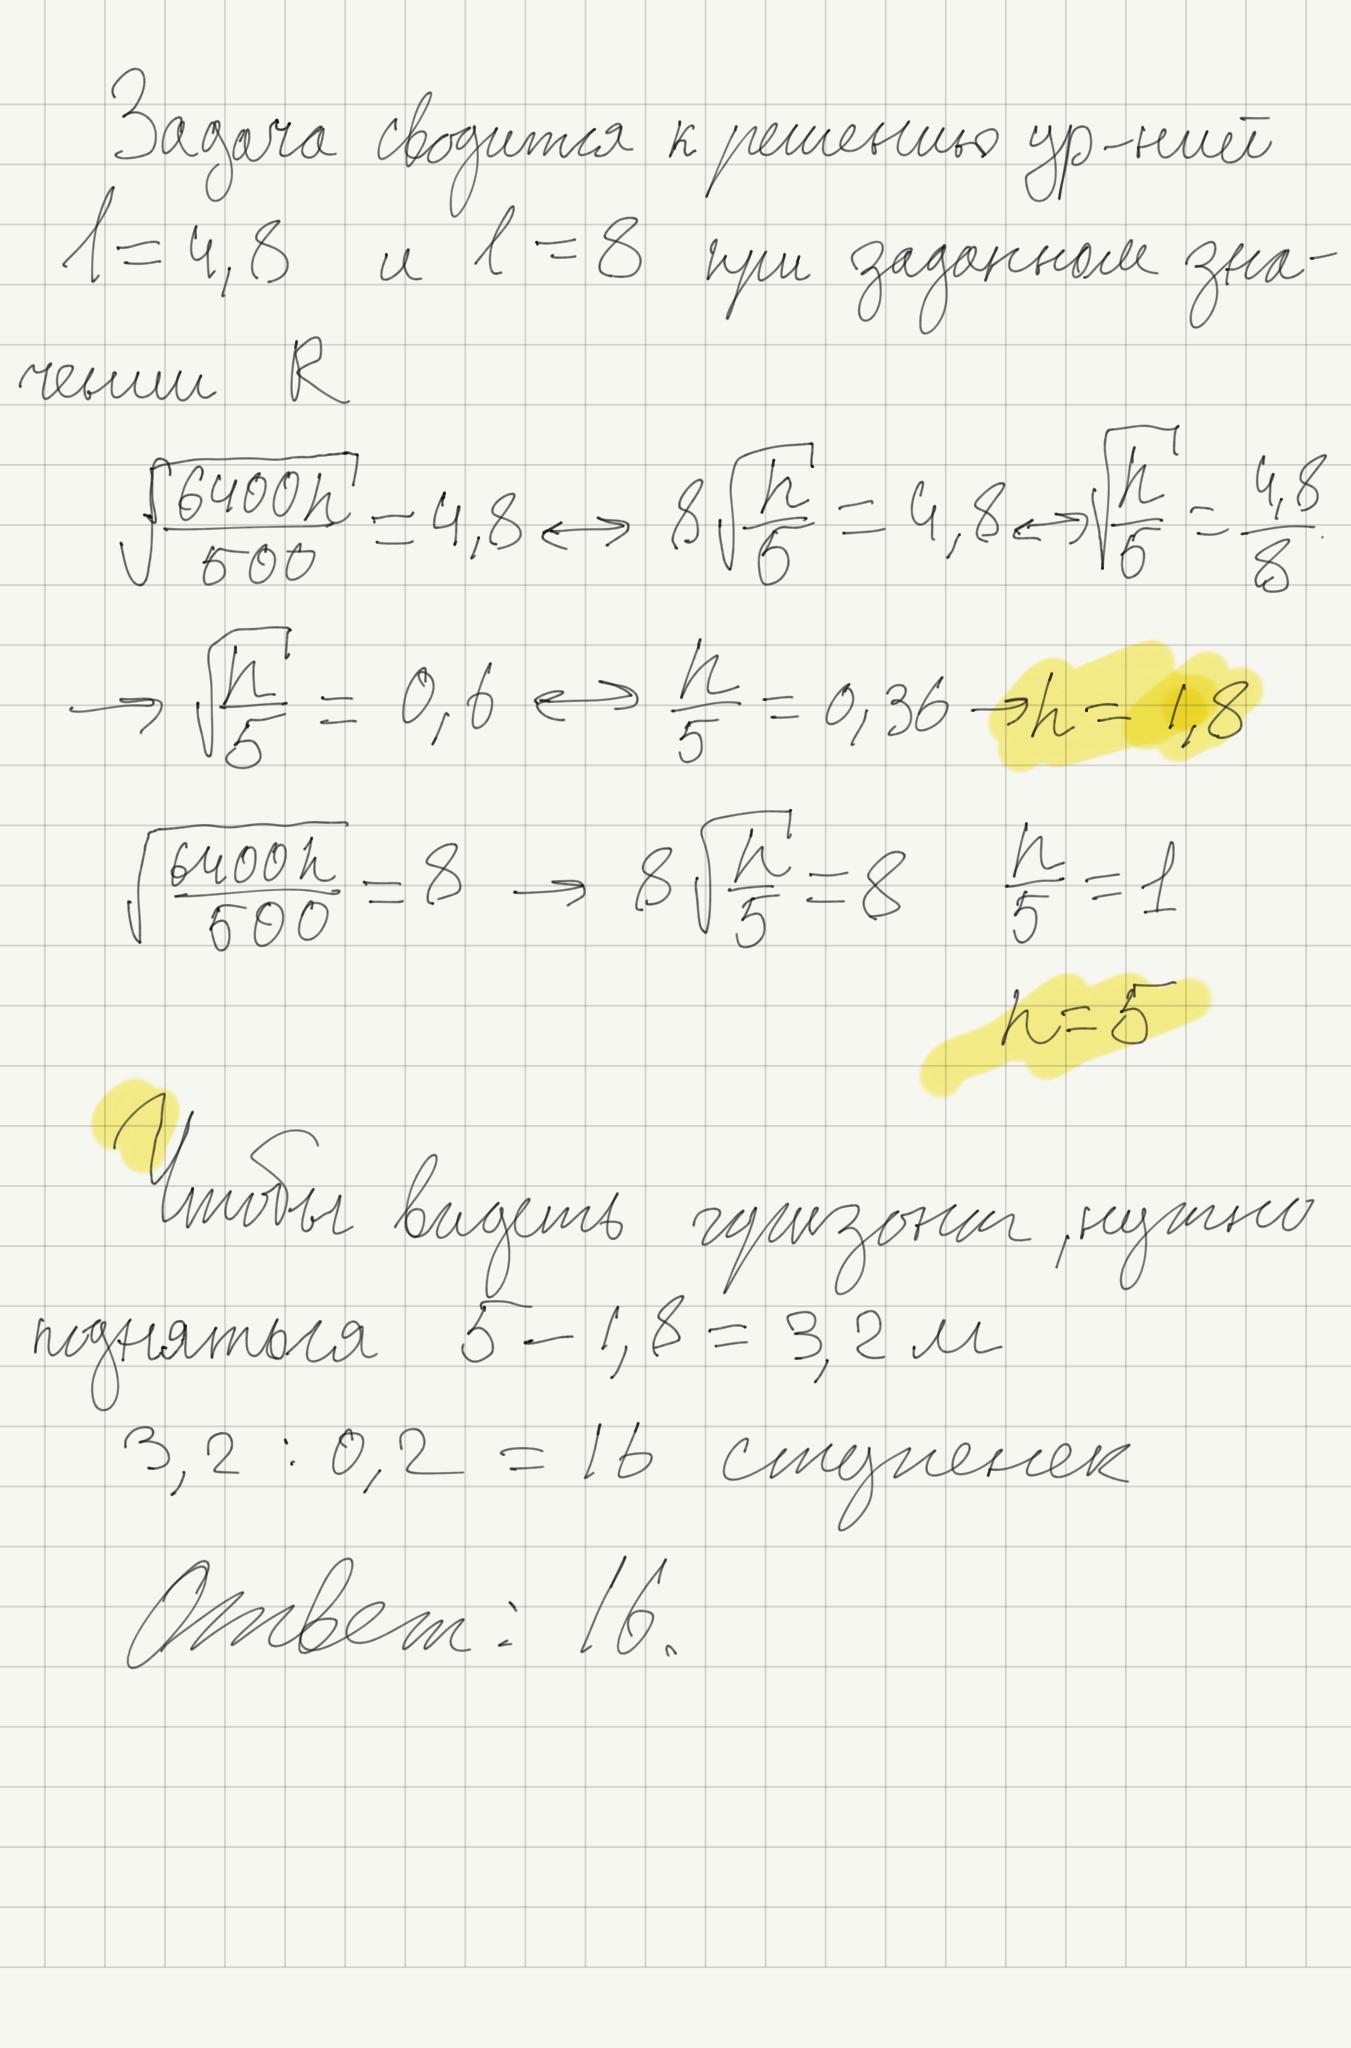 Задача сводится к решению ур-ний
l = 4,8 и l = 8 при заданном зна-
чении R
√(6400h/500) = 4,8 ↔ 8√(h/5) = 4,8 ↔ √(h/5) = 4,8/8
→ √(h/5) = 0,6 ↔ h/5 = 0,36 → h = 1,8
√(6400h/500) = 8 → 8√(h/5) = 8 h/5 = 1
h = 5
Чтобы видеть горизонт, нужно
подняться 5 − 1,8 = 3,2 м
3,2 : 0,2 = 16 ступенек
Ответ: 16.